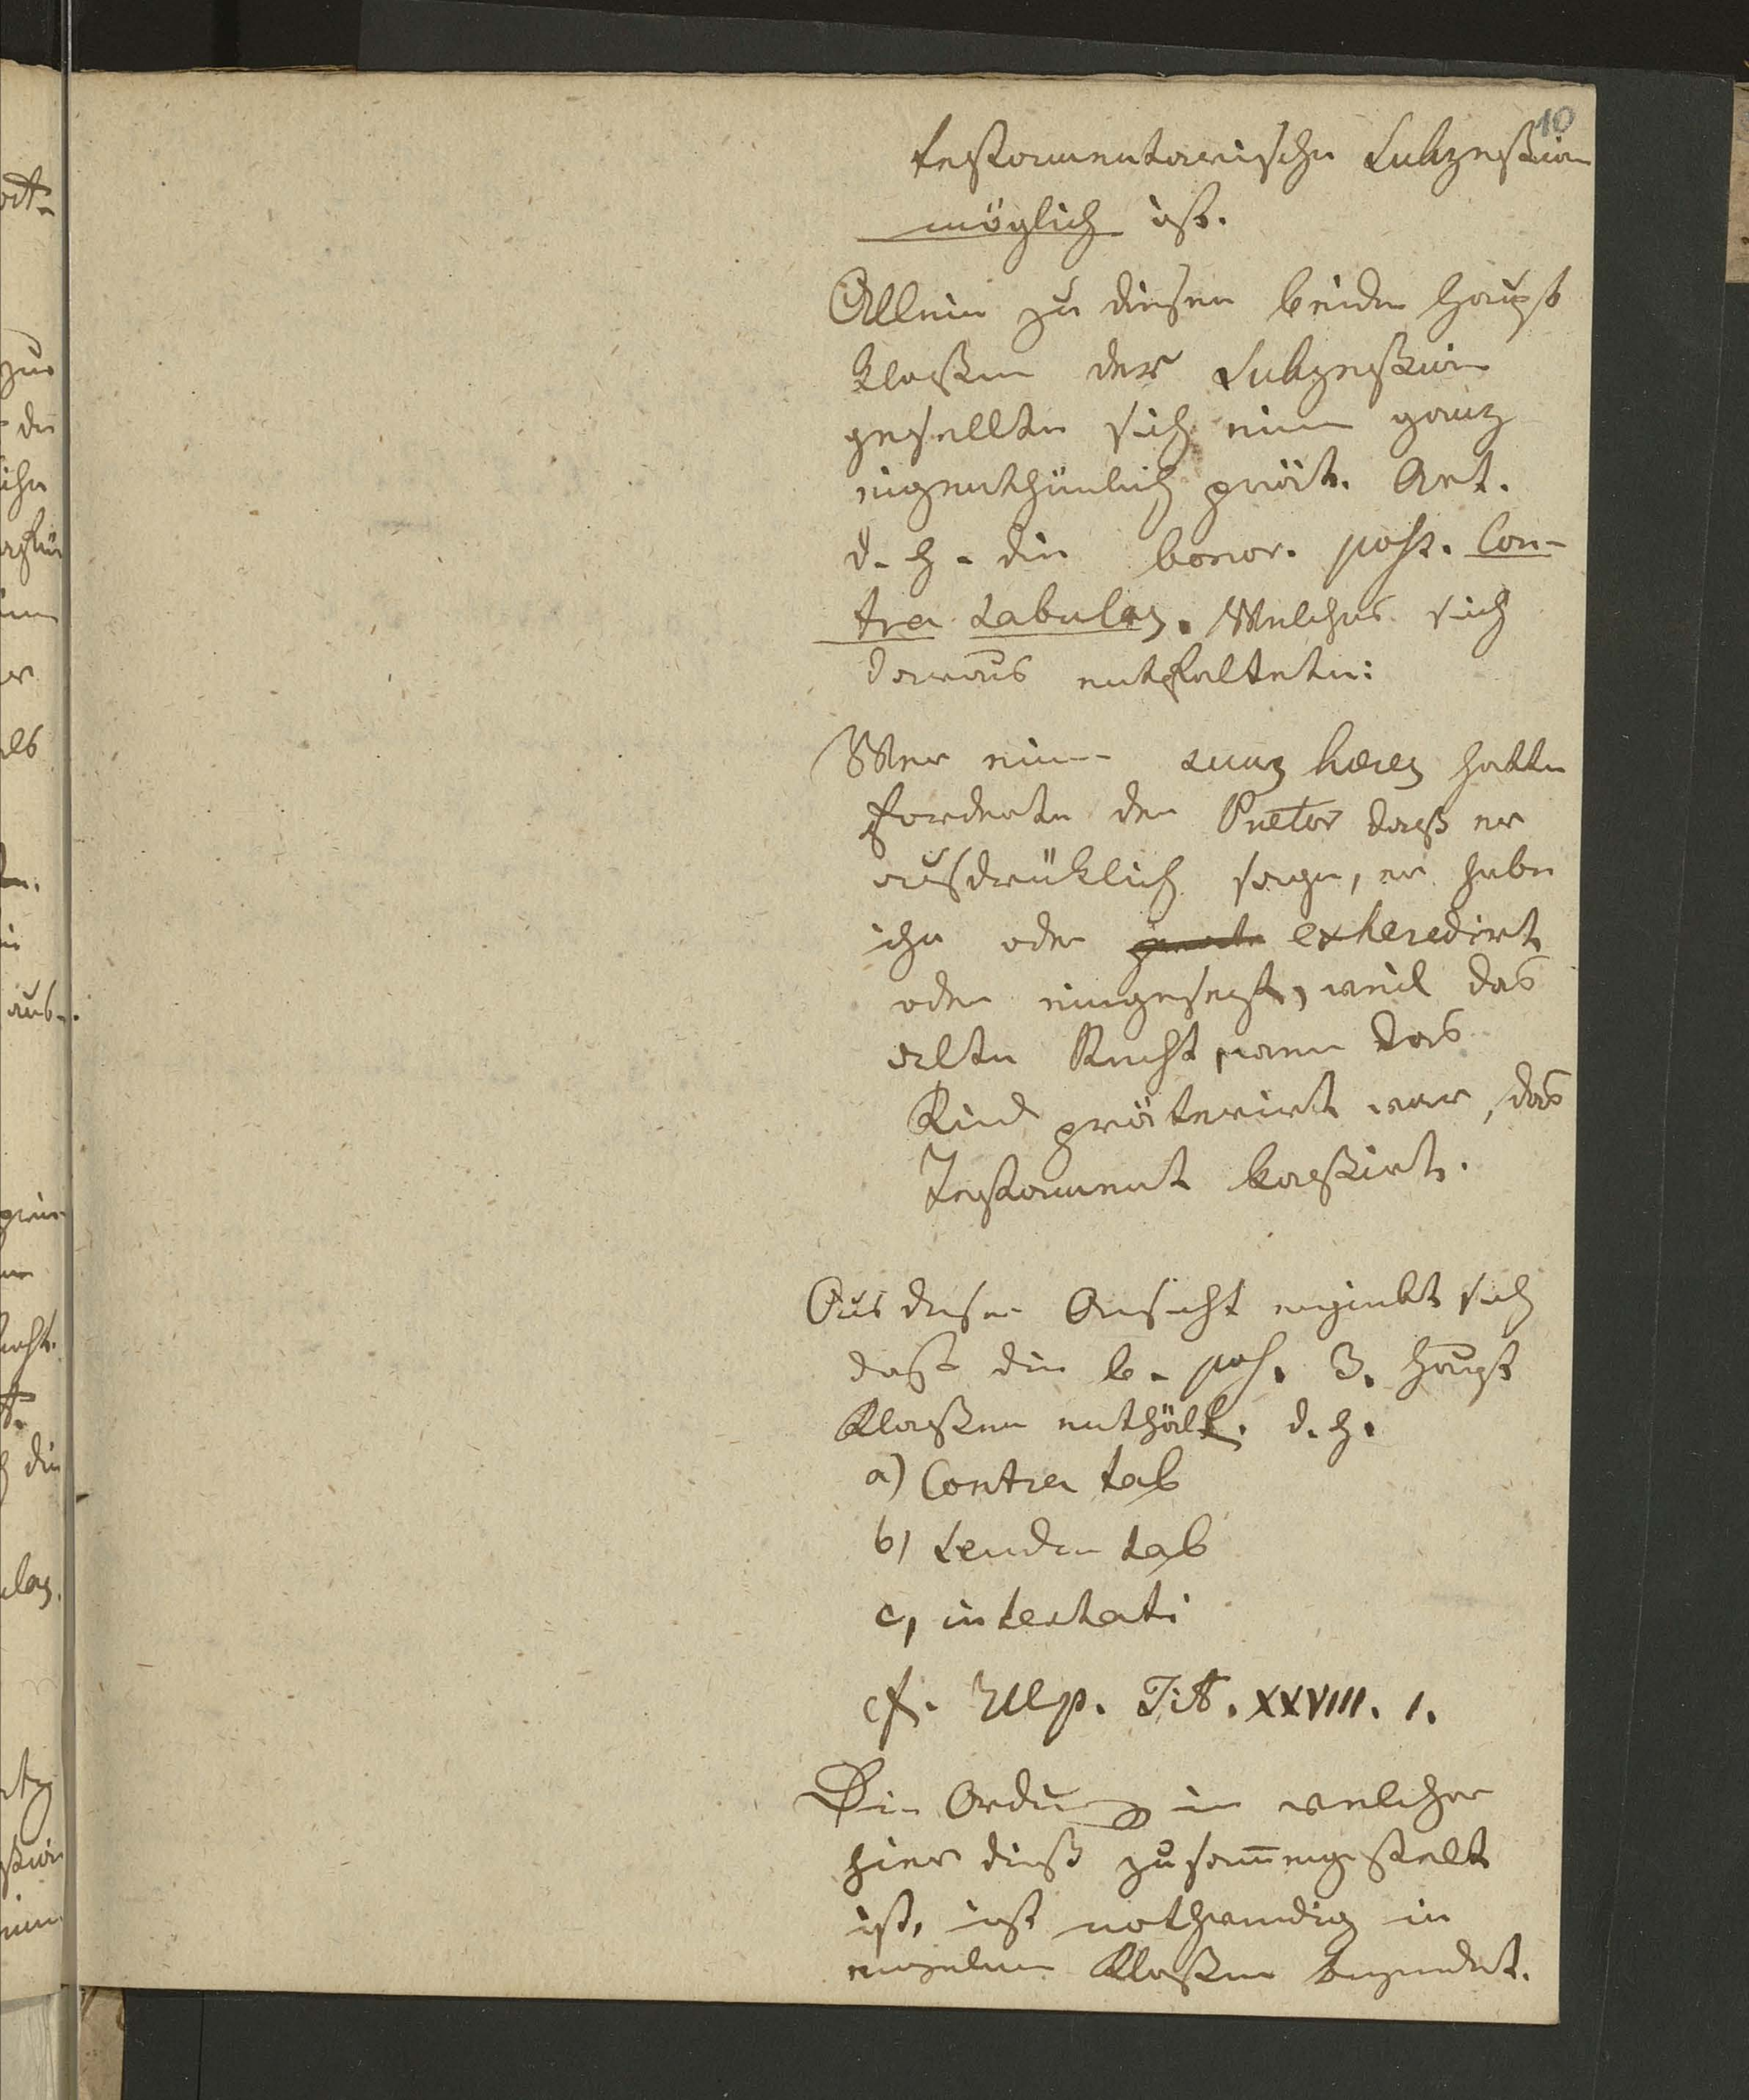 10
testamentarische Sukzeßion
möglich ist.
Allein zu diesen beiden Haupt
klaßen der Sukzeßion
gesellte sich eine ganz
eigenthümlich prät. Art.
d. h. die bonor. poss. Con-
tra tabulas. Welches sich
daraus entfaltete:
Wer einen suus heres hatte
forderte der Pretor daß er
ausdrüklich sage, er habe
ihn oder exheredirt
oder eingesezt, weil das
alte Recht, wenn das
Kind präterirt war, das
Testament kaßirt.
Aus dieser Ansicht ergiebt sich
daß die b. poss. 3. Haupt
Klaßen enthält. d. h.
a) Contra tab
b) secundum tab
c, intestati
cf. Ulp. Tit. XXVIII. 1.
Die Ordnung in welcher
hier dieß zusam̄engestelt
ist, ist nothwendig in
einzelnen Klaßen begründet.
ort-
zur
die
ihn
er
als
aus-
die